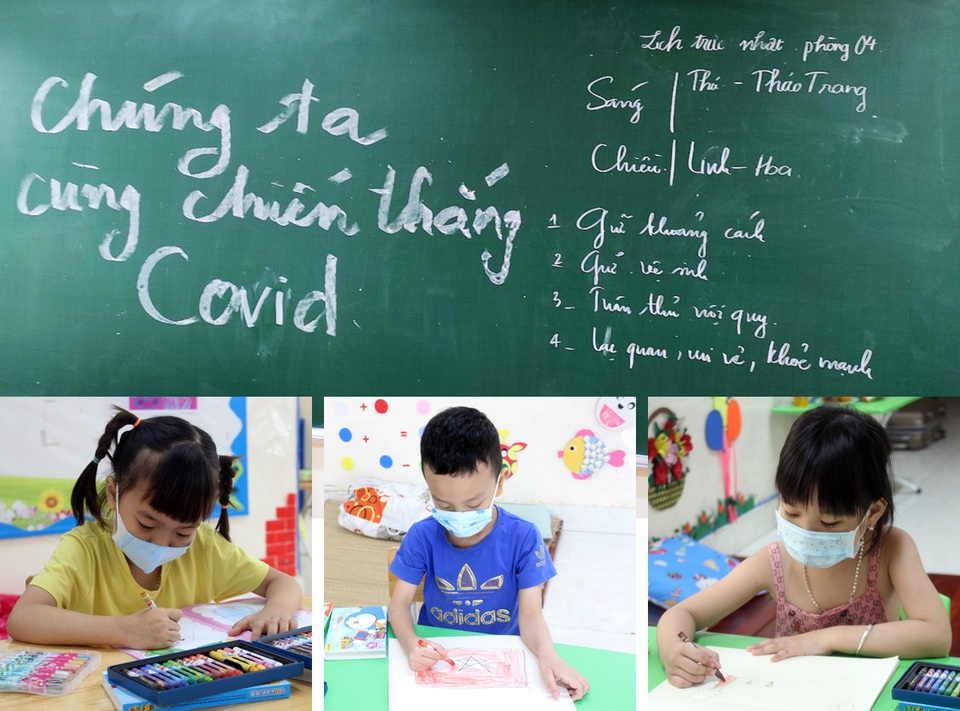 Chúng ta
cùng chiến thắng
Covid
Lịch trực nhật phòng 04
Sáng | Thi - Thảo Trang
Chiều | Linh - Hoa
1 Giữ khoảng cách
2 Giữ vệ sinh
3_ Tuân thủ nội quy
4_ Lạc quan, vui vẻ, khoẻ mạnh
adidas